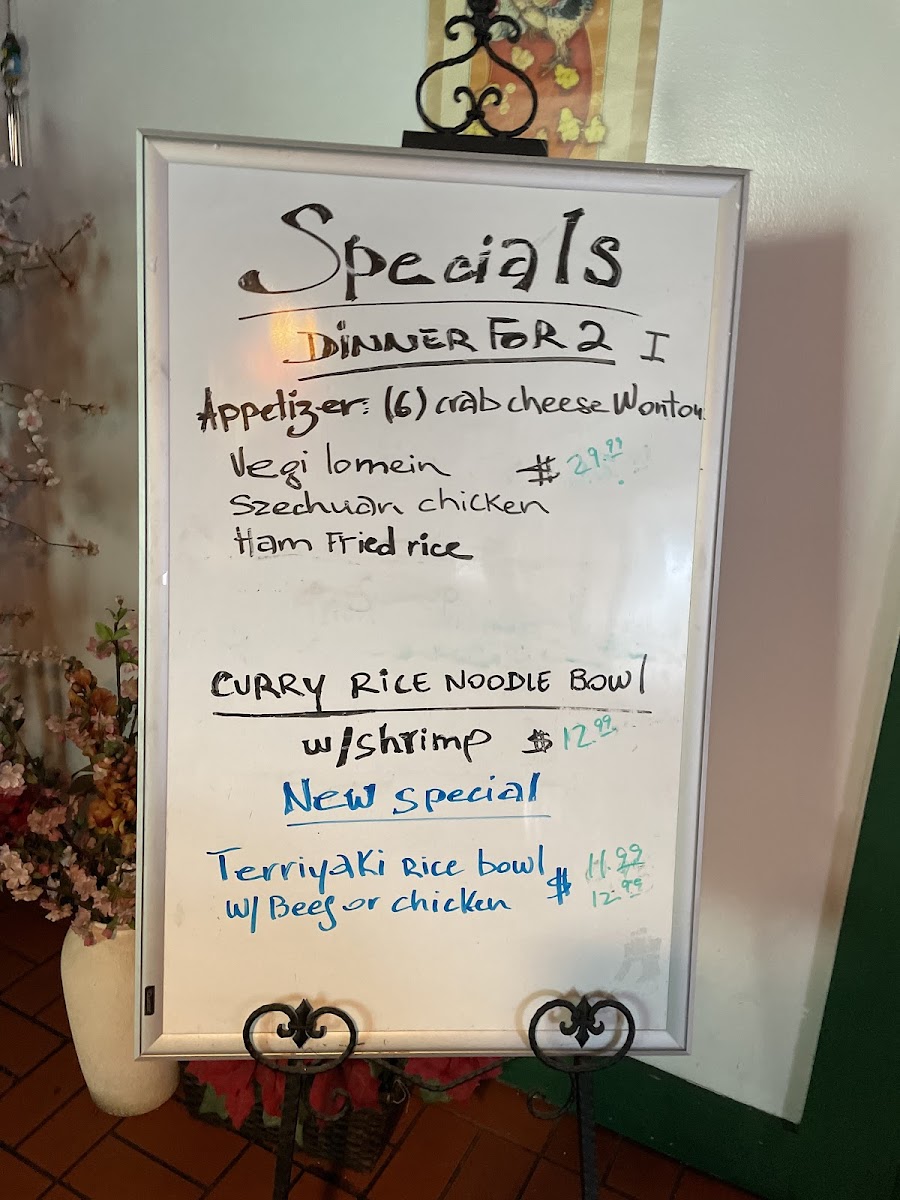 Specials
DINNER FOR 2 I
Appetizer: (6) crab cheese Wonton
Vegi lomein $ 29.99
Szechuan chicken
Ham Fried rice
CURRY RICE NOODLE BOWl
w/shrimp $ 12.99
New special
Terriyaki Rice bowl $ 11.99
w/ Beef or chicken 12.99